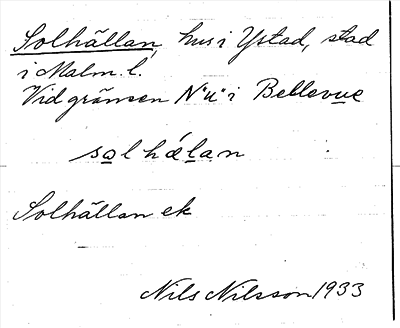 Solhällan, hus i Ystad, stad
i Malm. l.
Vid gränsen N"u" i Bellevue
solhälan
Solhällan ek
Nils Nilsson 1933